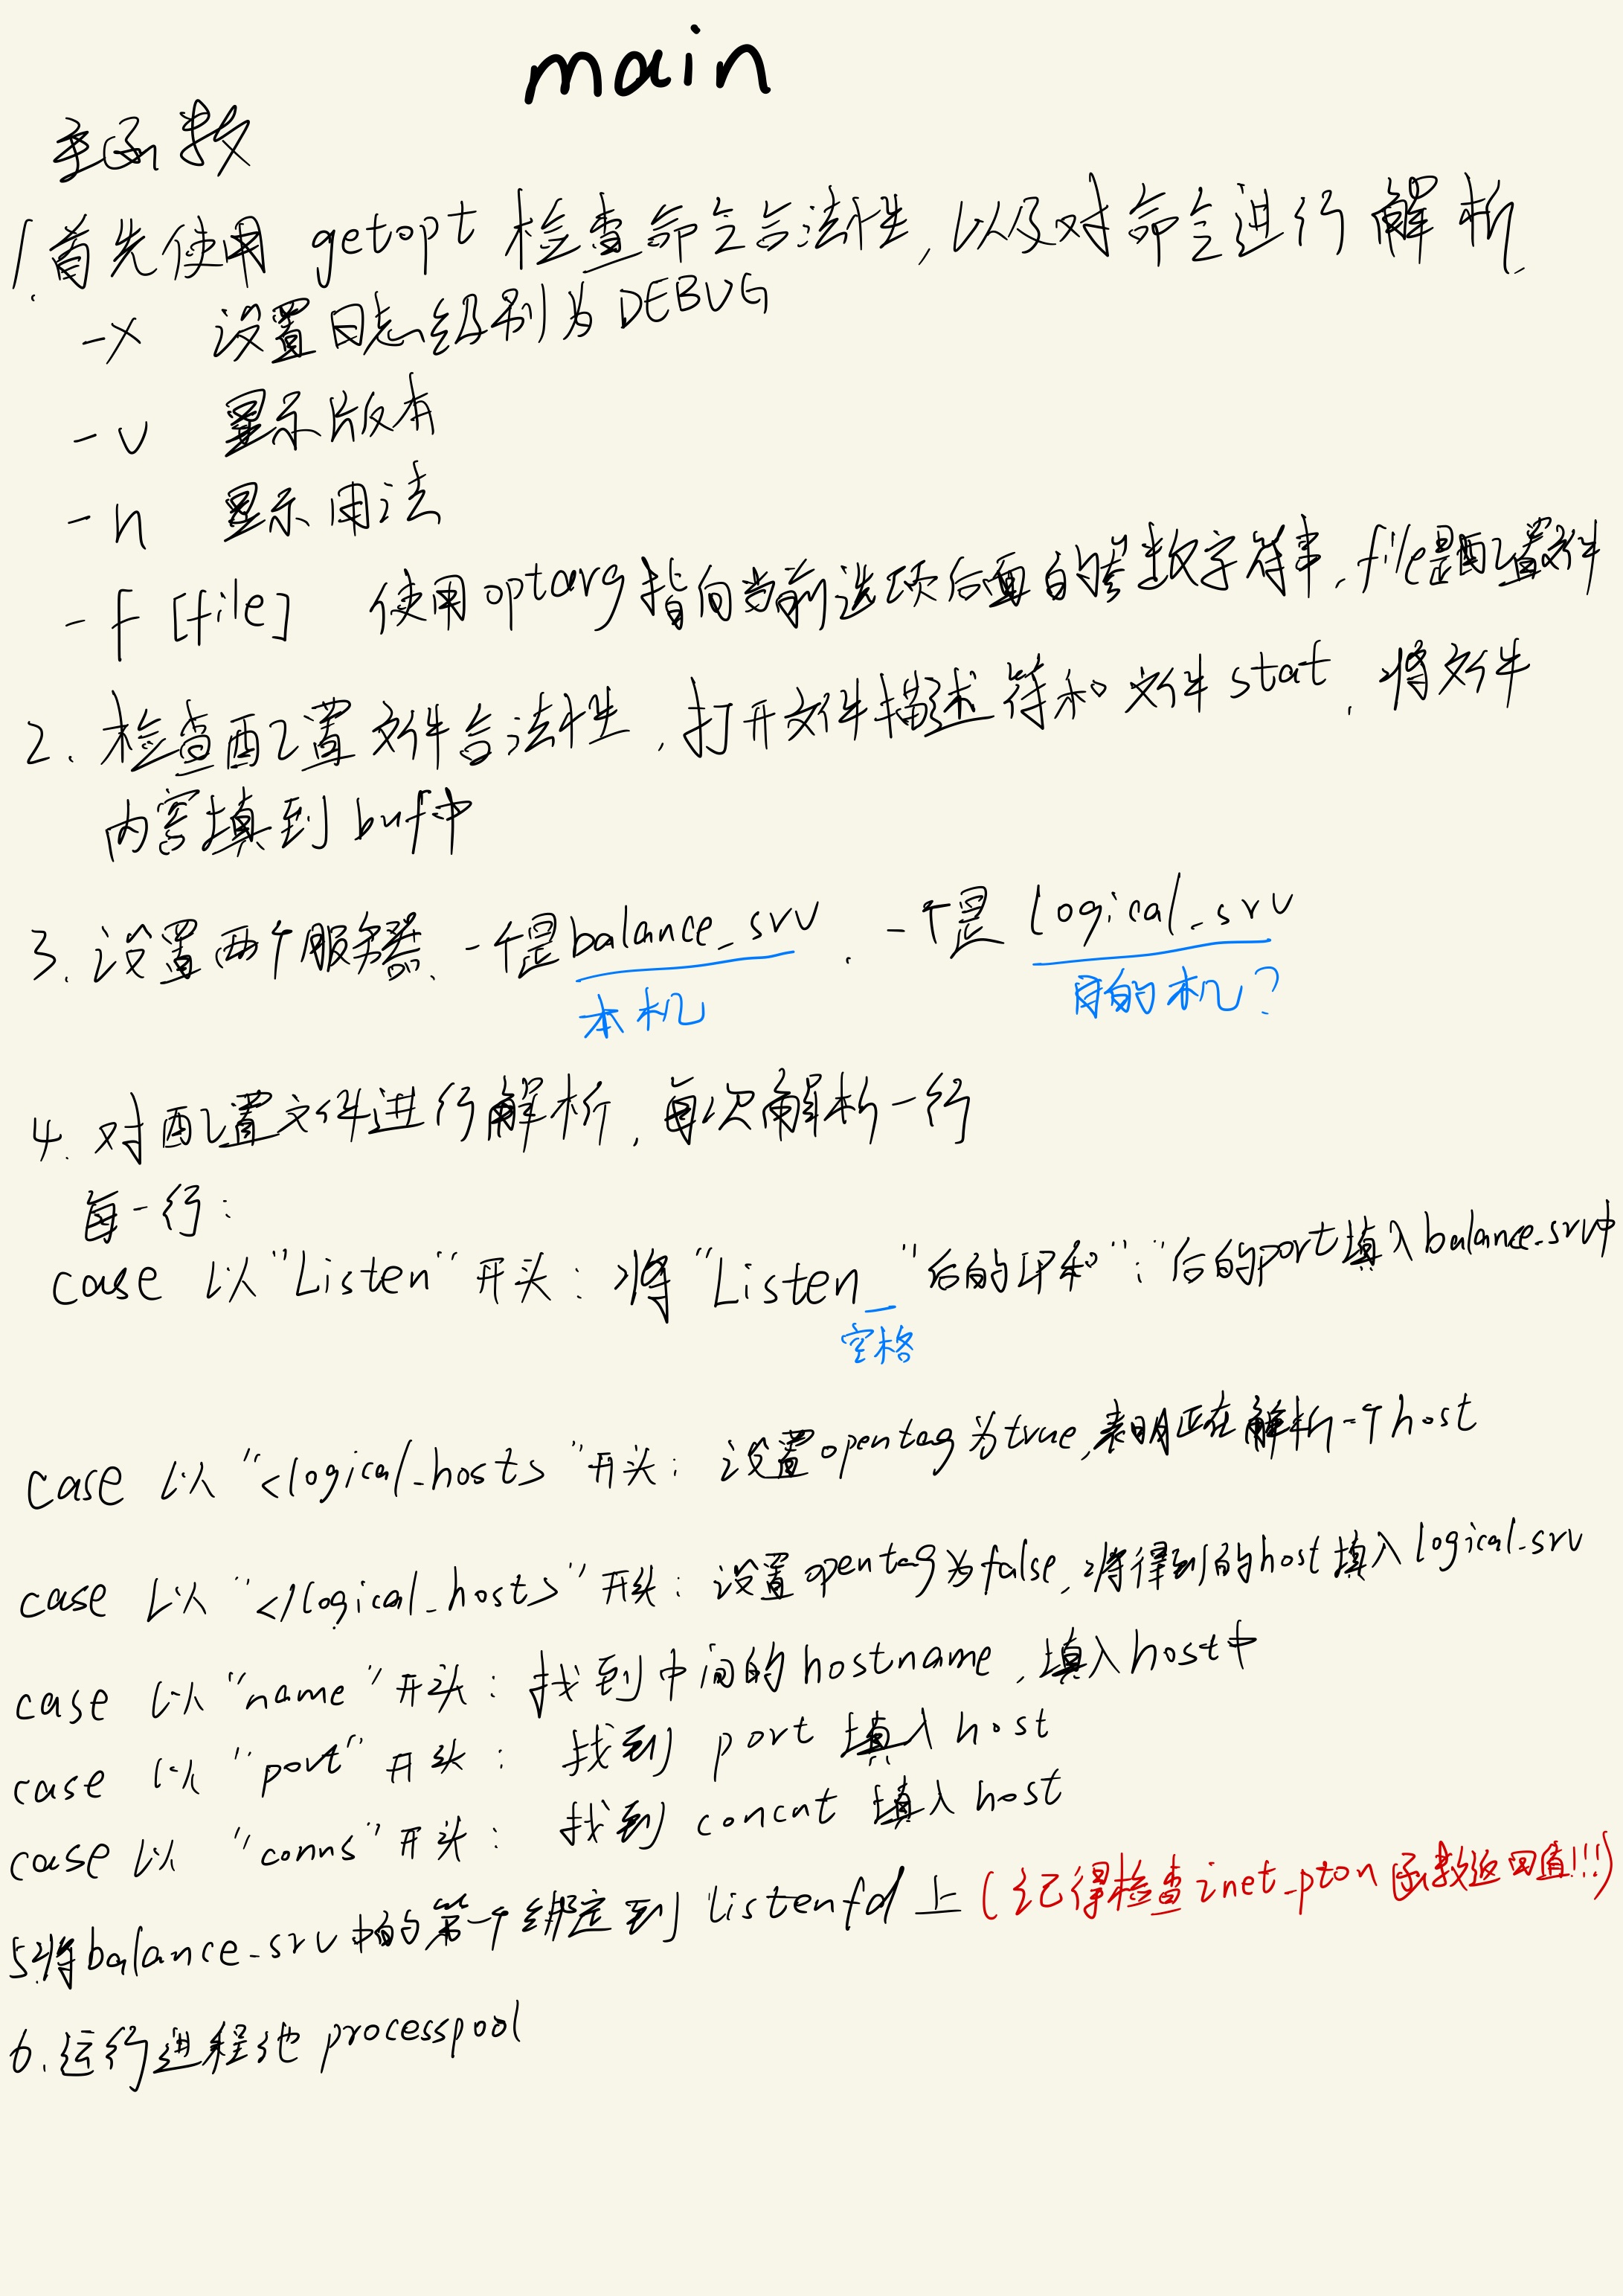 main
主函数
1.首先使用 getopt 检查命令合法性,以及对命令进行解析.
-x 设置日志级别为 DEBUG
-v 显示版本
-h 显示用法
-f [file] 使用optarg指向当前选项后面的参数字符串,file是配置文件
2. 检查配置文件合法性,打开文件描述符和文件stat,将文件
内容填到buf中
3. 设置两个服务器、一个是balance_srv,一个是 logical_srv
本机 目的机?
4. 对配置文件进行解析,每次解析一行
每一行:
case 以"Listen"开头:将"Listen_"后的IP和":"后的port填入balance_srv中
空格
case 以"<logical_host>"开头:设置opentag为true,表明正在解析一个host
case 以"</logical_host>"开头:设置opentag为false,将得到的host填入logical_srv
case 以"name"开头:找到中间的hostname,填入host中
case 以"port"开头:找到port填入host
case 以"conns"开头:找到concnt填入host
5.将balance_srv中的第一个绑定到listenfd上(记得检查inet_pton函数返回值!!!)
6.运行进程池processpool